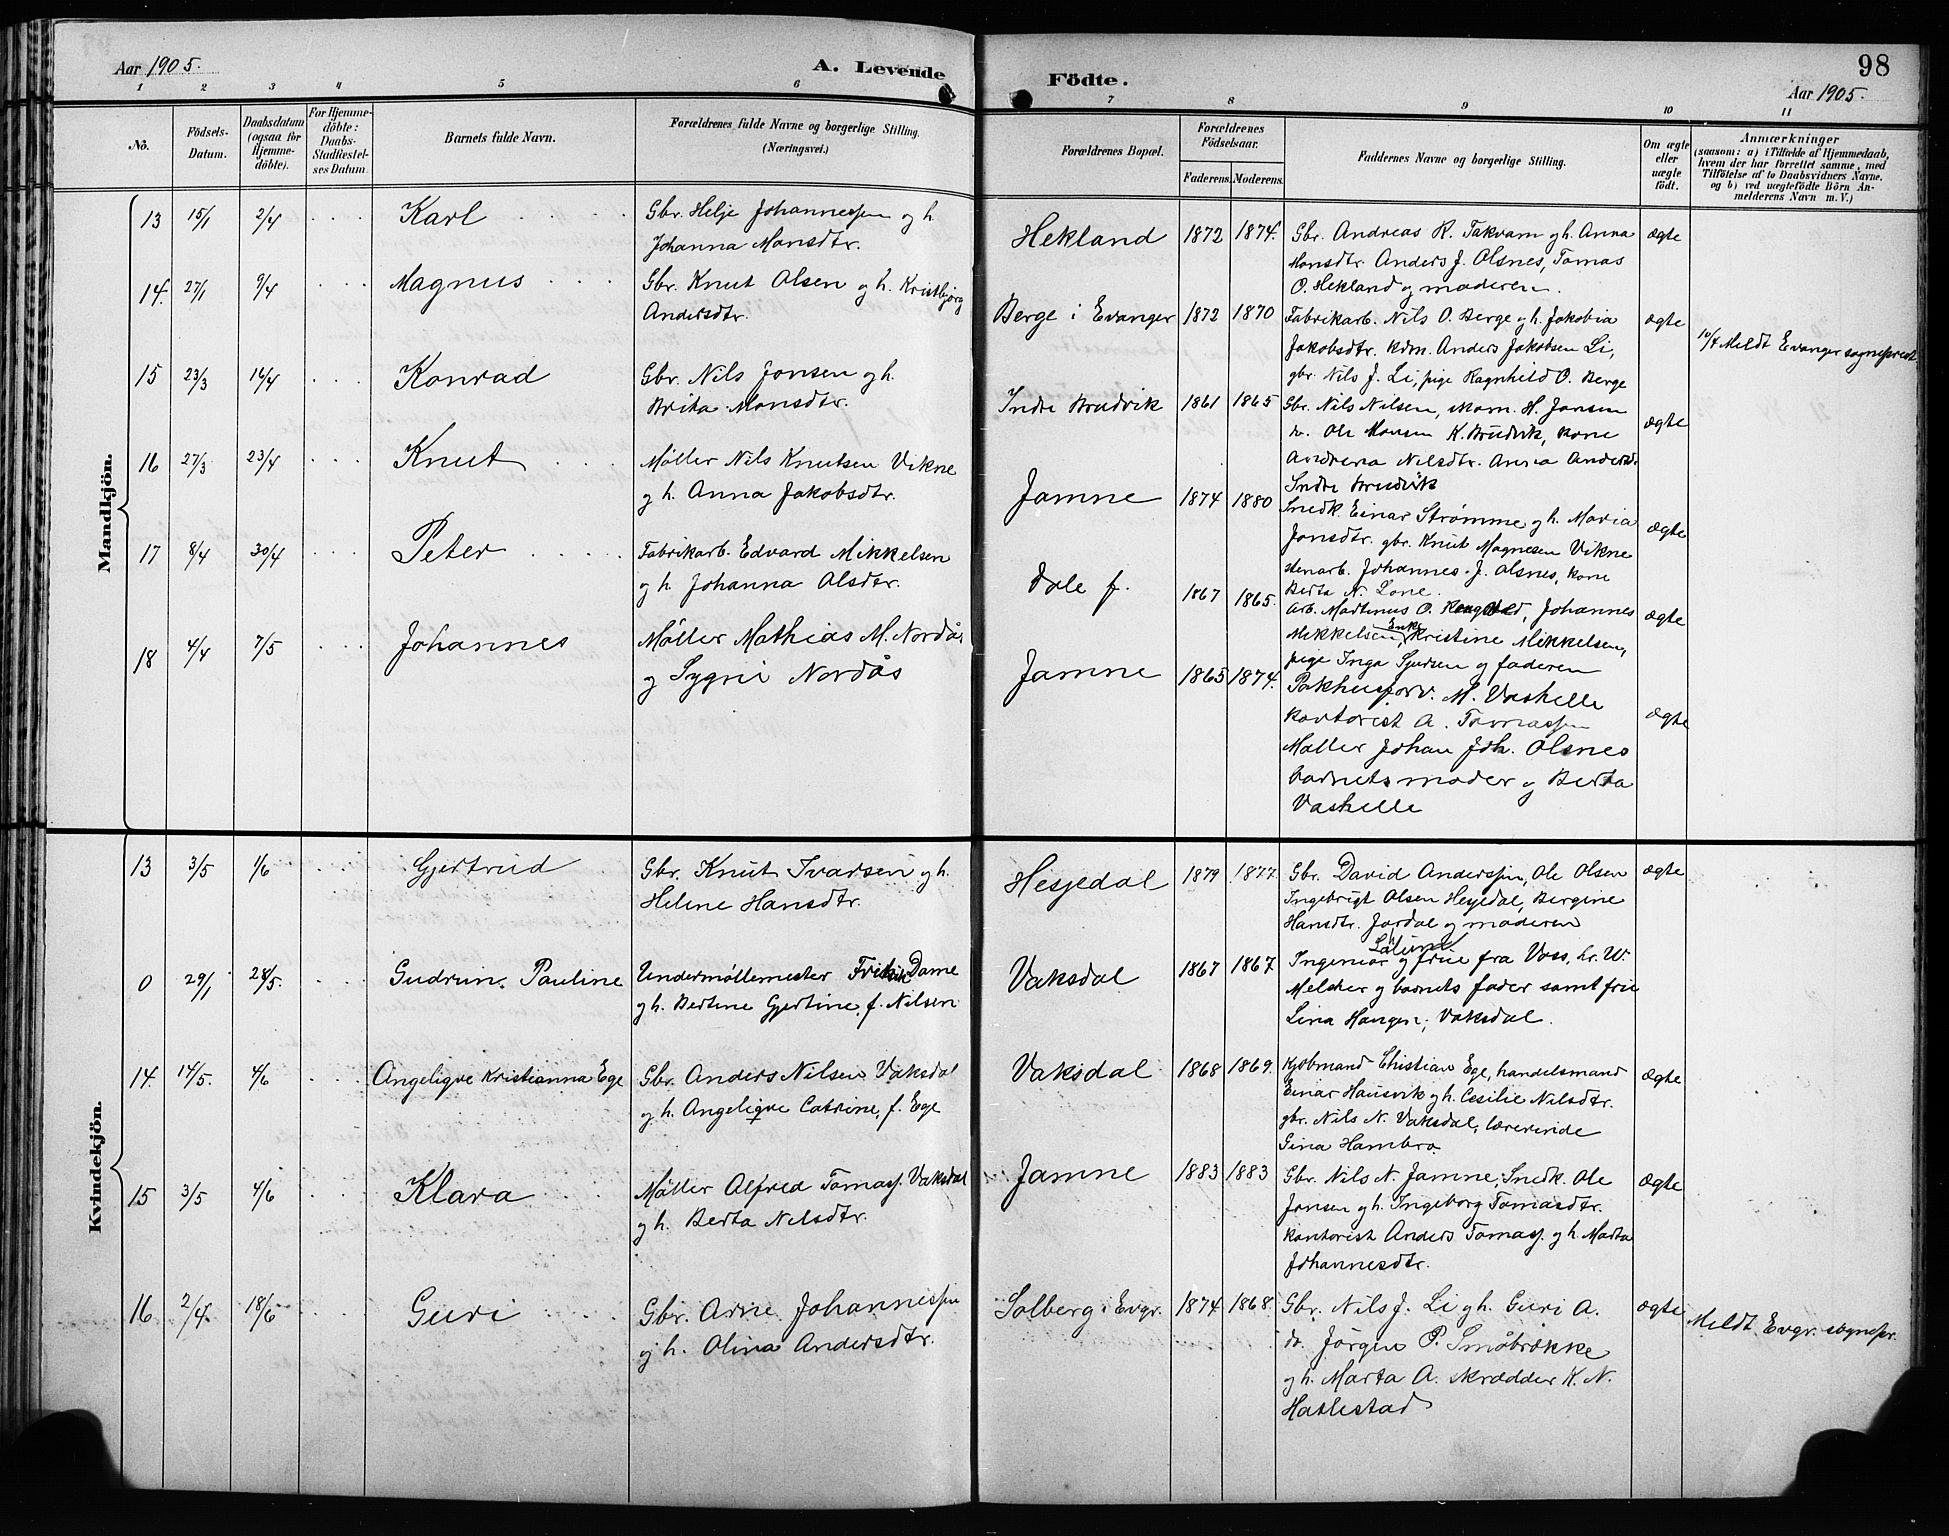 Aar 1905.
A. Levende
Födte.
98
Aar 1905.
1 2 3 4 5 6 7 8 9 10 11
No.
Födsels-Datum.
Daabsdatum (ogsaa for Hjemme-döbte).
For Hjemme-döbte: Daabs-Stadfæstel-ses Datum.
Barnets fulde Navn.
Forældrenes fulde Navne og borgerlige Stilling.
(Næringsvei.)
Forældrenes Bopæl.
Forældrenes Födselsaar.
Faderens. Moderens.
Faddernes Navne og borgerlige Stilling.
Om ægte eller uægte födt.
Anmærkninger
(saasom: a) i Tilfælde af Hjemmedaab,
hvem der har forrettet samme, med
Tilföielse af to Daabsvidners Navne,
og b) ved uægtefödte Börn An-
melderens Navn m. V.)
Mandkjön.
13 15/1 2/4 Karl
Gbr. Helje Johannessen og h.
Johanna Monsdtr.
Hekland 1872 1874.
Gbr. Andreas R. Takvam og h. Anna
Monsdtr. Anders J. Olsnes, Tomas
O. Hekland og moderen.
ægte
14. 27/1 9/4 Magnus
Gbr. Knut Olsen og h. Kristbjørg
Andersdtr.
Berge i Evanger 1872 1870
Fabrikarb. Nils O. Berge og h. Jakobia
Jakobsdtr. kdm. Anders Jakobsen Li,
gbr. Nils J. Li, pige Ragnhild O. Berge
ægte
10/4 Meldt Evanger sogneprest
15 23/3 16/4 Konrad
Gbr. Nils Jonsen og h.
Brita Monsdtr.
Indre Brudvik 1861 1865
Gbr. Nils Nilsen, Mom. H. Jonsen
do. Ole Monsen K. Brudvik, kone
Andrena Nilsdtr. Anna Andersd.
Indre Brudvik
ægte
16 27/3 23/4 Knut
Møller Nils Knutsen Vikne
og h. Anna Jakobsdtr.
Jamne 1874 1880
Snedk. Einar Strømme og h. Maria
Jonsdtr. gbr. Knut Magnesen Vikne
stenarb. Johannes J. Olsnes, kone
Berta N. Lone.
ægte
17 8/4 30/4 Peter
Fabrikarb. Edvard Mikkelsen
og h. Johanna Olsdtr.
Dale f. 1867 1865.
Arb. Martinus O. Johannes
Mikkelsen, Enke Kristine Mikkelsen,
pige Inga Sjursen og faderen
ægte
18 4/4 7/5 Johannes
Møller Mathias M. Nordås
og Sygni Nordås
Jamne 1865 1874.
Pakhusforv. M. Vashelle
kontorist A. Tomassen
Møller Johan Joh. Olsnes
barnets moder og Berta
Vashelle
ægte
Kvindekjön.
13 3/5 1/6 Gjertrud
Gbr. Knut Ivarsen og h.
Helene Hansdtr.
Hesjedal 1879 1877.
Gbr. David Anderssen, Ole Olsen
Ingebrigt Olsen Hesjedal, Bergine
Hansdtr. Jordal og moderen
ægte
0 29/1 28/5. Gudrun Pauline
Undermøllemester Dame
og h. Bertine Gjertine, f. Nilsen
Vaksdal 1867 1867
Ingeniør og frue fra Voss, hr. W.
Melcher og barnets fader samt frue
Lina Haugen, Vaksdal.
14. 14/5. 4/6 Angeliqve Kristianna Ege
Gbr. Anders Nilsen Vaksdal
og h. Angeliqve Catrine, f. Ege
Vaksdal 1868 1869.
Kjøbmand Christian Ege, handelsmand
Einar Hausvik og h. Cesilie Nilsdtr.
gbr. Nils N. Vaksdal, lærerinde
Gina Hambro.
ægte
15 3/5 4/6 Klara
Møller Alfred Tomass. Vaksdal
og h. Berta Nilsdtr.
Jamne 1883 1883
Gbr. Nils N. Jamne, Snedk. Ole
Jonsen og h. Ingeborg Tomasdtr.
kontorist Anders Tomass. og h. Marta
Johannesdtr.
ægte
16 2/4. 18/6 Guri
Gbr. Arne Johannessen
og h. Olina Andersdtr.
Solberg i Evgr. 1874 1868.
Gbr. Nils J. Li og h. Guri A.
do. Jørgen P. Småbrække
og h. Marta A. skrædder K. N.
Hatlestad
ægte
Meldt Evgr. sognepr.